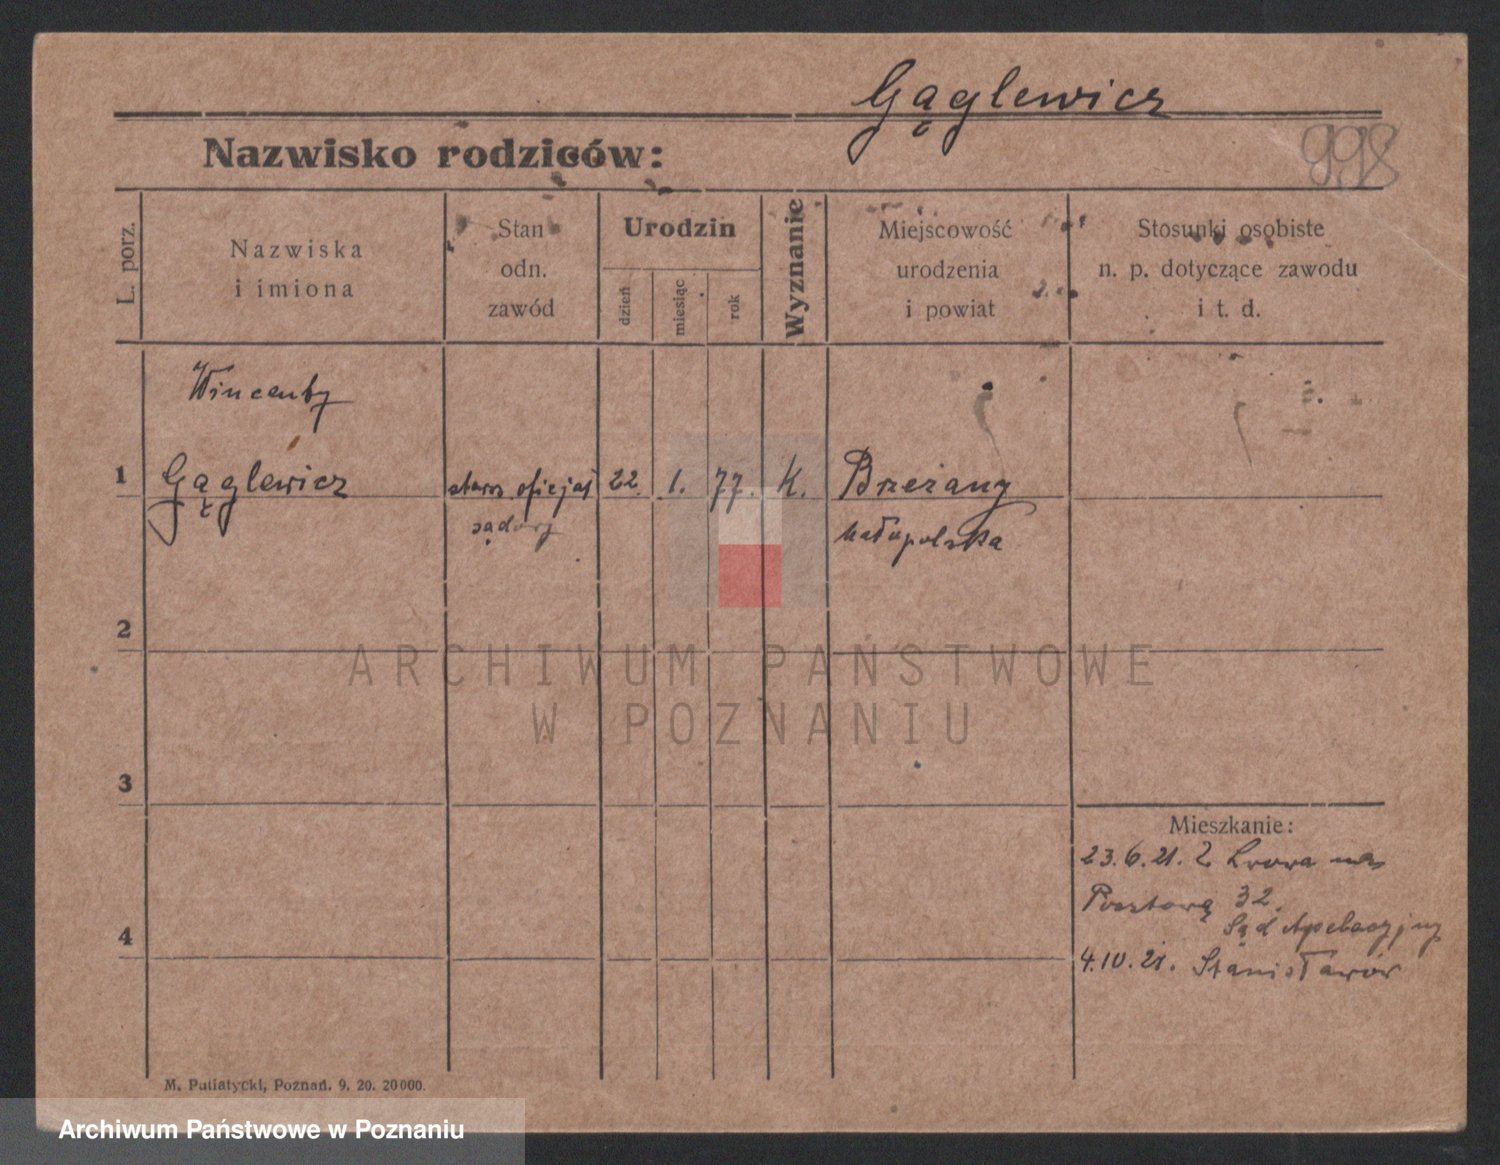 Gąglewicz
998
Nazwisko rodziców:
L. porz.
Nazwiska
i imiona
Stan
odn.
zawód
Urodzin
dzień
miesiąc
rok
Wyznanie
Miejscowość
urodzenia
i powiat
Stosunki osobiste
n. p. dotyczące zawodu
i t. d.
Wincenty
1
Gąglewicz
oficjał
22. 1. 77. K.
Brzeżany
sądowy
Małopolska
2
ARCHIWUM PAŃSTWOWE
W POZNANIU
3
Mieszkanie:
23.6.21. Z Lwowa na
Pocztową 32.
Sąd Apelacyjny
4
4.10.21. Stanisławów
M. Putiatycki, Poznań. 9. 20. 20000.
Archiwum Państwowe w Poznaniu